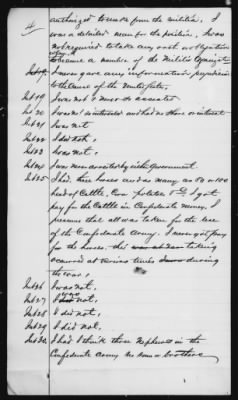 4
authorized to make from the militia. I
was a detailed man for the position, I was
not required to take any oath or obligation
to become a member of the Militia
Int 18, I never gave any information prejudicial
to the cause of the United States,
Int 19 I was not I never so associated
Int 20 I was not interested and had no share or interest
Int 21 I was not
Int 22 I did not,
Int 23 I was not,
Int 24 I was never arrested by either Government
Int 25 I had three horses and as many as 50 or 100
head of Cattle, Corn potatoes &c I got
pay for the Cattle in Confederate money. I
presume that all was taken for the use
of the Confederate Army. I never got pay
for the horses, the taking
occurred at various times during
the war,
Int 26 I was not,
Int 27 I was not,
Int 28 I did not,
Int 29 I did not,
Int 30 I had I think three Nephews in the
Confederate army no sons or brothers